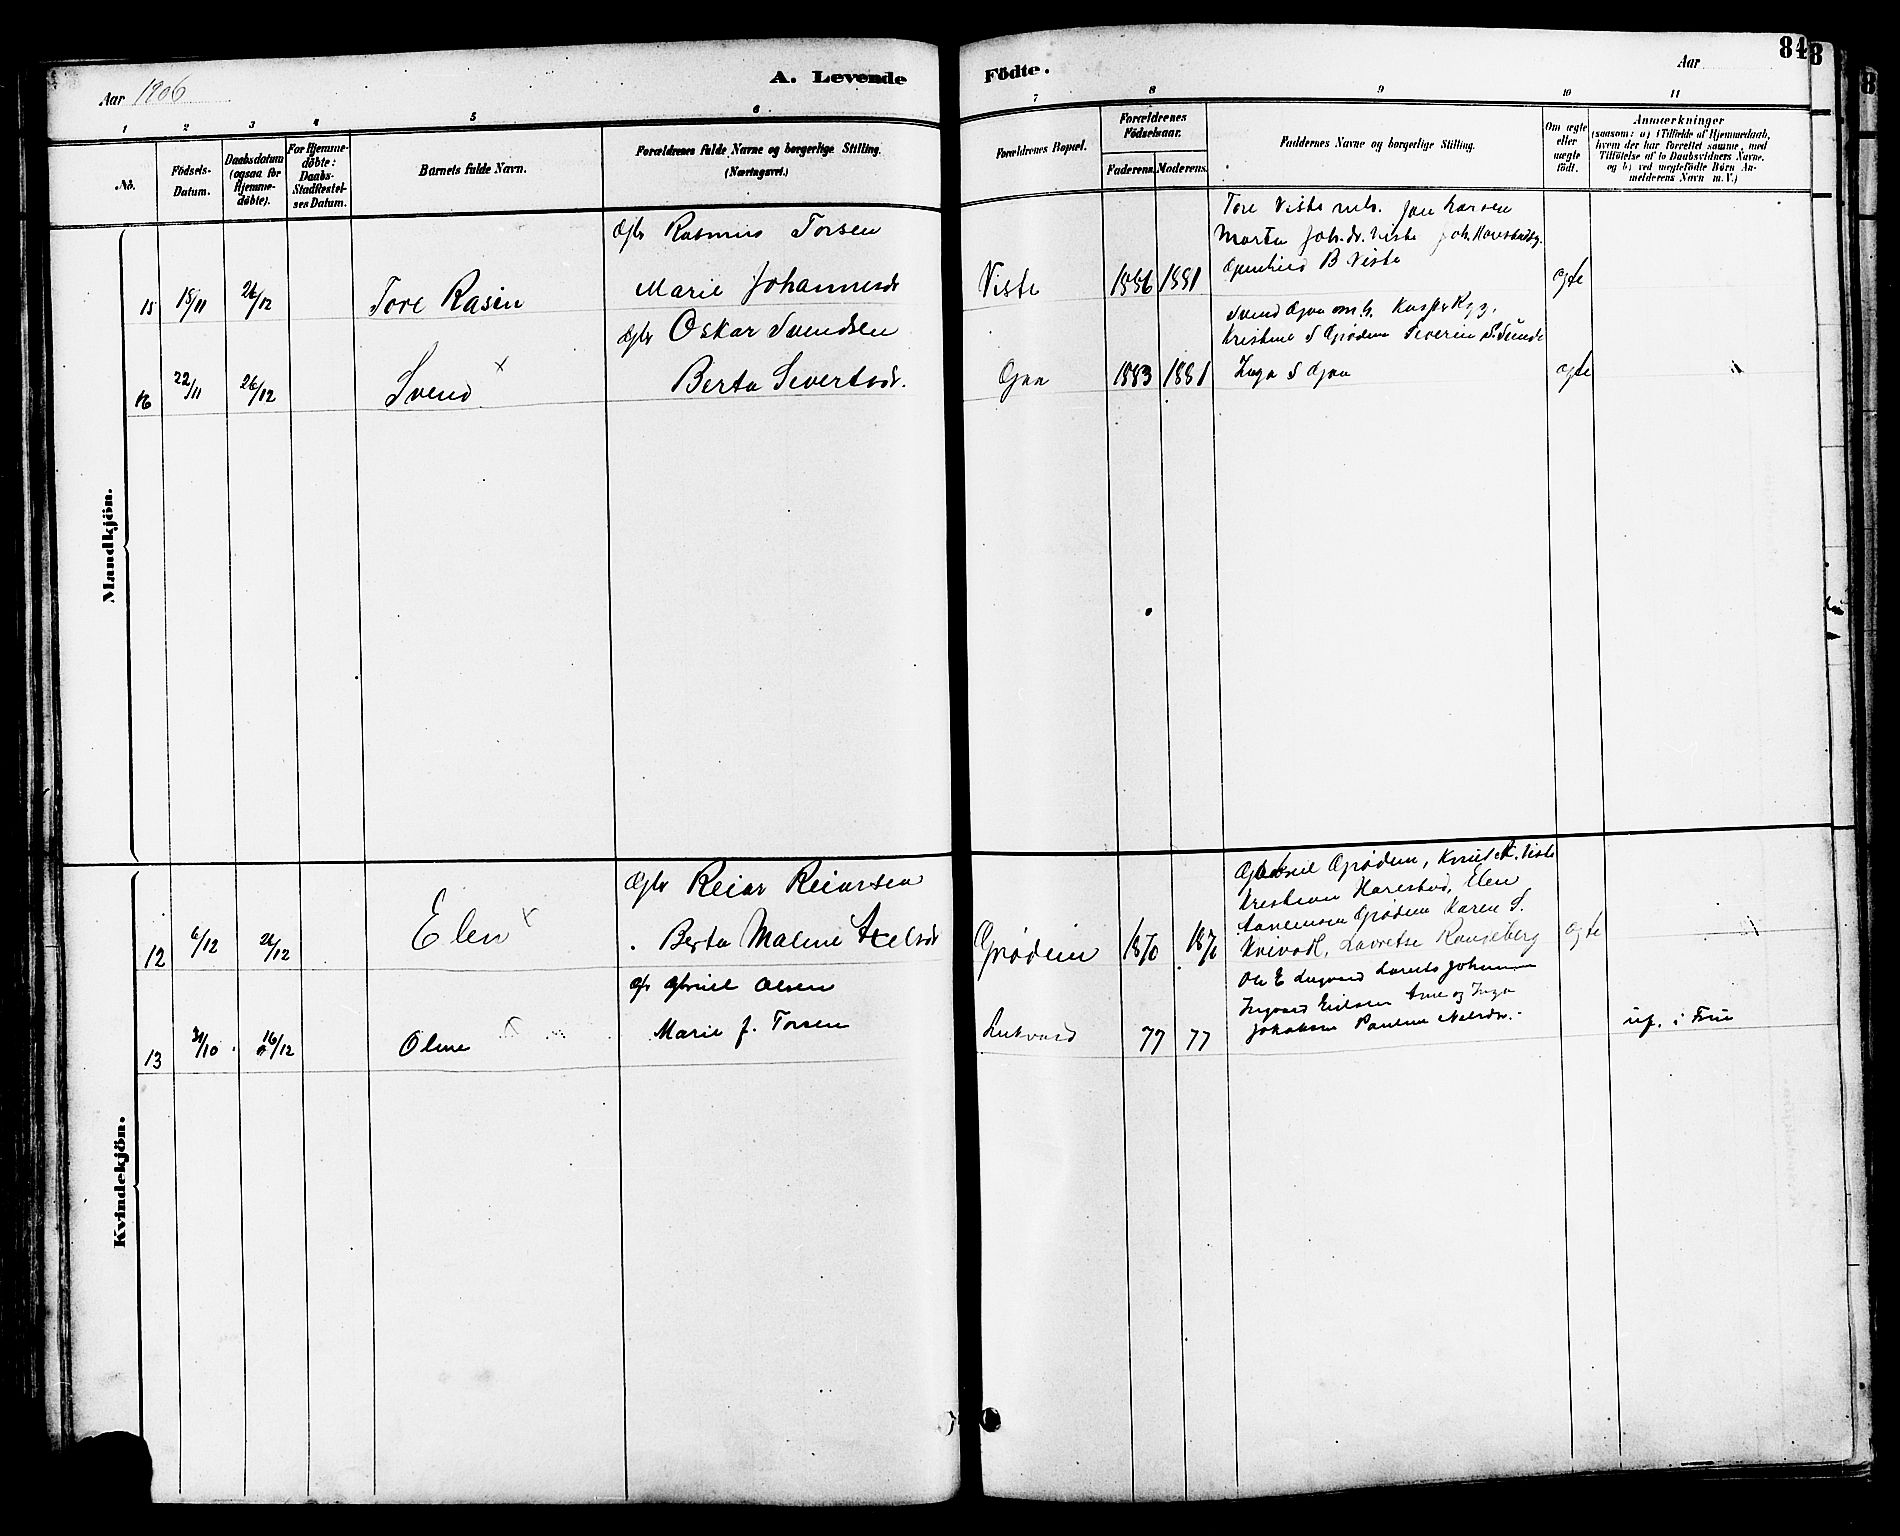 Aar 1906
A. Levende
Födte.
Aar
84
1
2
3
4
5
6
7
8
9
10
11
No.
Födsels-Datum.
Daabsdatum (ogsaa for Hjemme-döbte).
For Hjemme-döbte: Daabs-Stadfæstel-ses Datum.
Barnets fulde Navn.
Forældrenes fulde Navne og borgerlige Stilling. (Næringsvei.)
Forældrenes Bopæl.
Forældrenes Födselsaar.
Faderens.
Moderens.
Faddernes Navne og borgerlige Stilling.
Om ægte eller uægte födt.
Anmærkninger
(saasom: a) i Tilfælde af Hjemmedaab,
hvem der har forrettet samme, med
Tilföielse af to Daabsvidners Navne,
og b) ved uægtefödte Börn An-
melderens Navn m. V.)
Mandkjön.
15
15/11
26/12
Tore Rasin
Gbr Rasmus Torsen
Marie Johannesdr
Viste
1856
1881
Tore Viste
Jan Larsen
Marta Joh.dr. Viste
B Viste
ægte
16
22/11
26/12
Svend
Gbr Oskar Svendsen
Berta Sivertsdr.
Gjaa
1883
1881
Svend Gjaa
Kristine S Grødem Severin S. Sunde
Inga S Gjaa
ægte
Kvindekjön.
12
6/12
26/12
Elen
Gbr Reiar Reiarsen
Berta Maline Axelsdr
Grødem
1870
1870
Gabriel Grødem, Knut K. Viste
Kristian Harestad, Elen
Grødem Karen S.
ægte
13
31/10
16/12
Oline
Gbr Gabriel Olsen
Marie J. Torsen
77
77
Ole E
Ingvard Erilsen Arne og Inga
i Frue